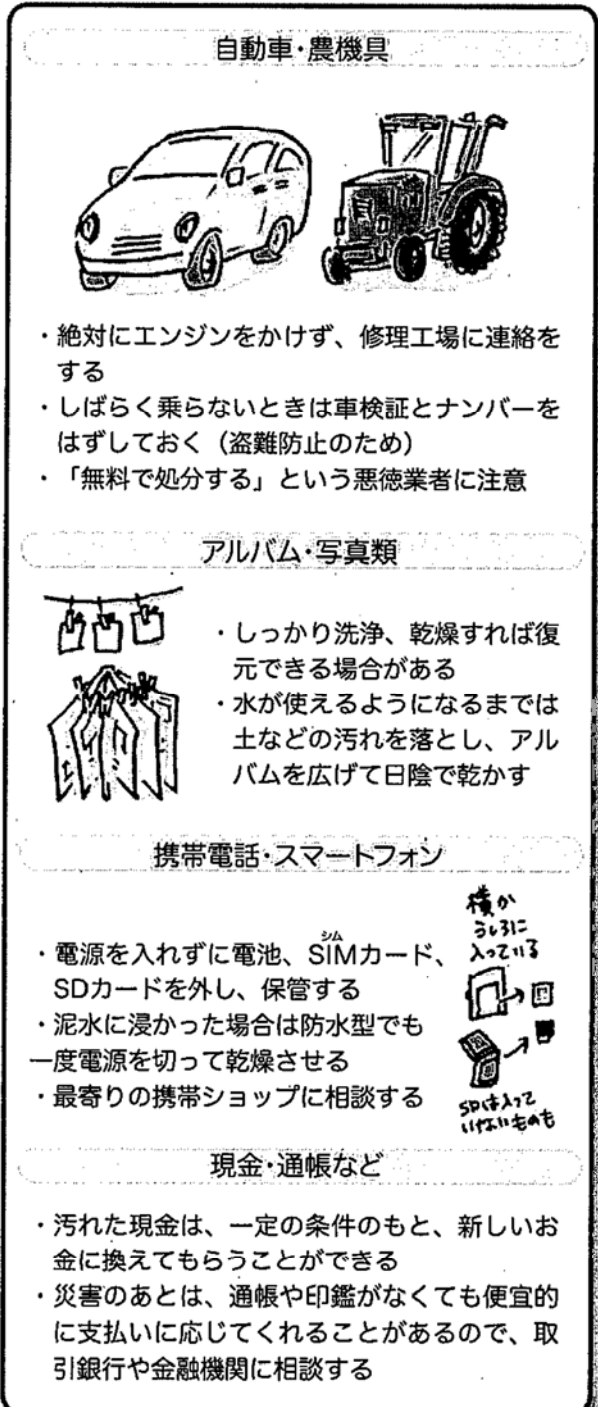 自動車・農機具
・絶対にエンジンをかけず、修理工場に連絡を
する
・しばらく乗らないときは車検証とナンバーを
はずしておく（盗難防止のため）
・「無料で処分する」という悪徳業者に注意
アルバム・写真類
・しっかり洗浄、乾燥すれば復
元できる場合がある
・水が使えるようになるまでは
土などの汚れを落とし、アル
バムを広げて日陰で乾かす
携帯電話・スマートフォン
横か
うしろに
入っている
シム
・電源を入れずに電池、SIMカード、
SDカードを外し、保管する
・泥水に浸かった場合は防水型でも
一度電源を切って乾燥させる
・最寄りの携帯ショップに相談する
SDは入って
いないものも
現金・通帳など
・汚れた現金は、一定の条件のもと、新しいお
金に換えてもらうことができる
・災害のあとは、通帳や印鑑がなくても便宜的
に支払いに応じてくれることがあるので、取
引銀行や金融機関に相談する